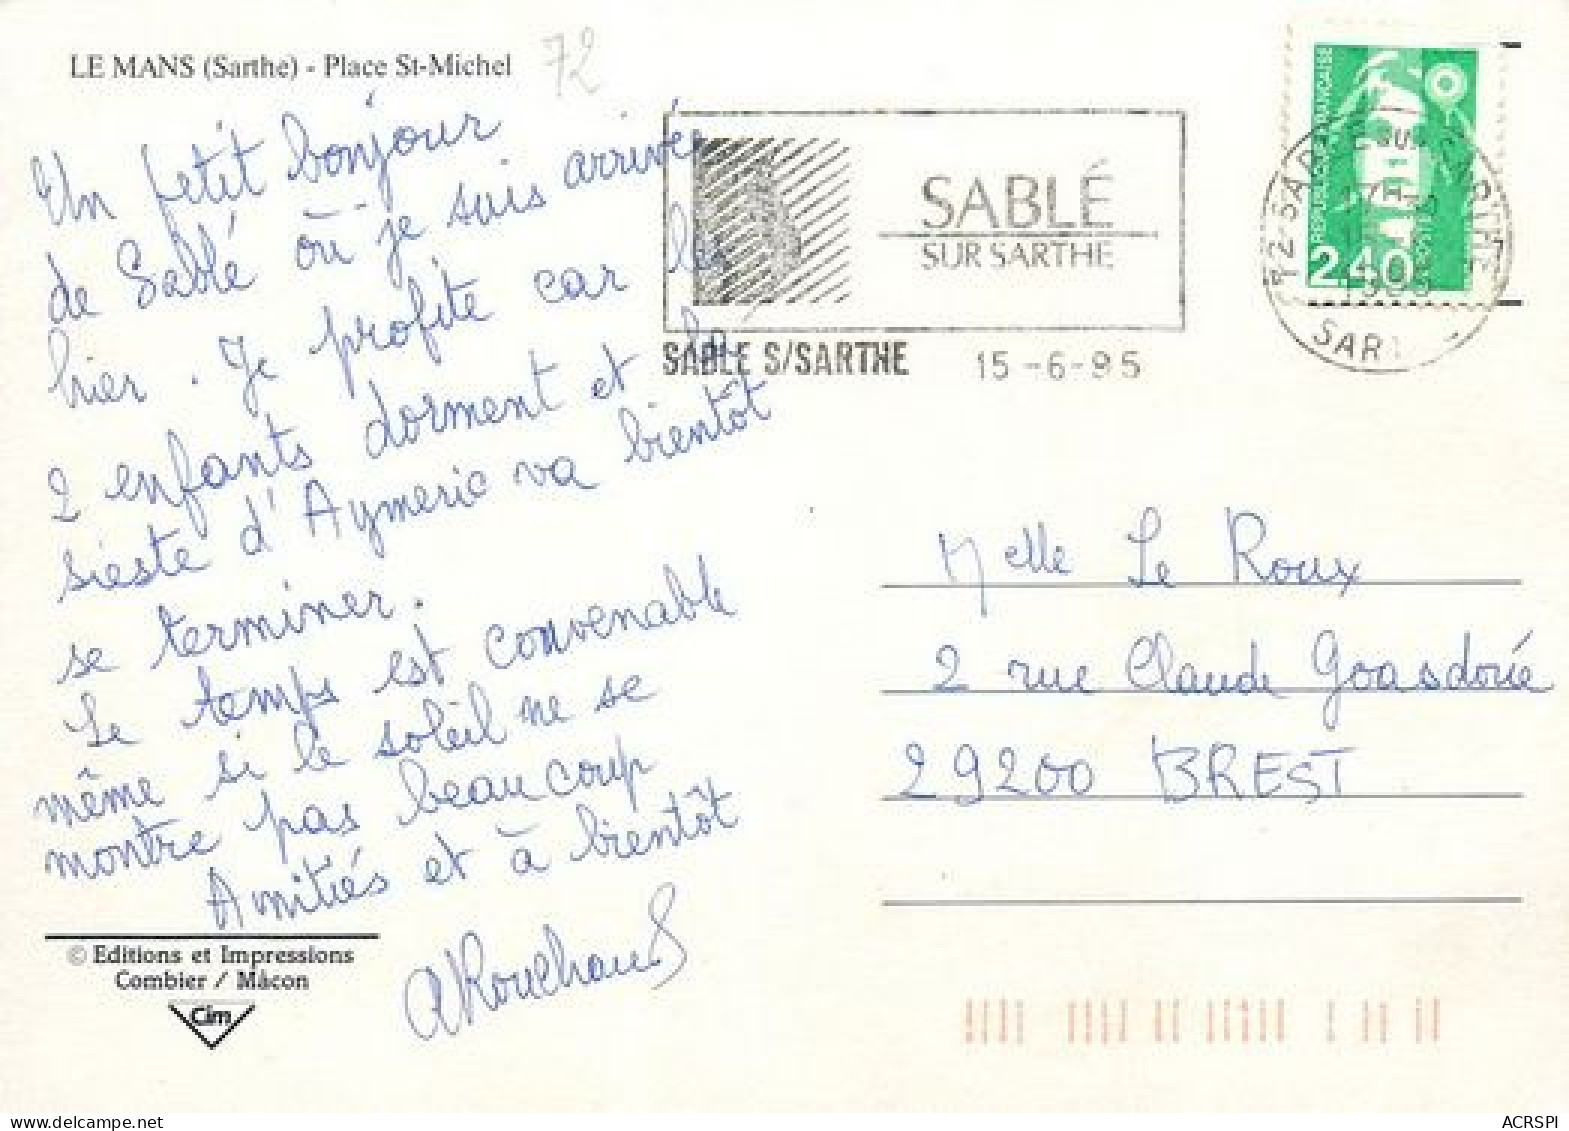 LE MANS (Sarthe) - Place St-Michel
72
Un petit bonjour
de Sablé où je suis arrivée
hier. Je profite car les
2 enfants dorment et la
sieste d'Aymeric va bientôt
se terminer.
Le temps est convenable
même si le soleil ne se
montre pas beaucoup
Amitiés et à bientôt
© Editions et Impressions
Combier / Mâcon
Cim
SABLÉ
SUR SARTHE
SABLE S/SARTHE 15-6-95
REPUBLIQUE FRANÇAISE
2,40
Melle Le Roux
2 rue Claude Goasdoué
29200 BREST
delcampe.net
ACRSPI